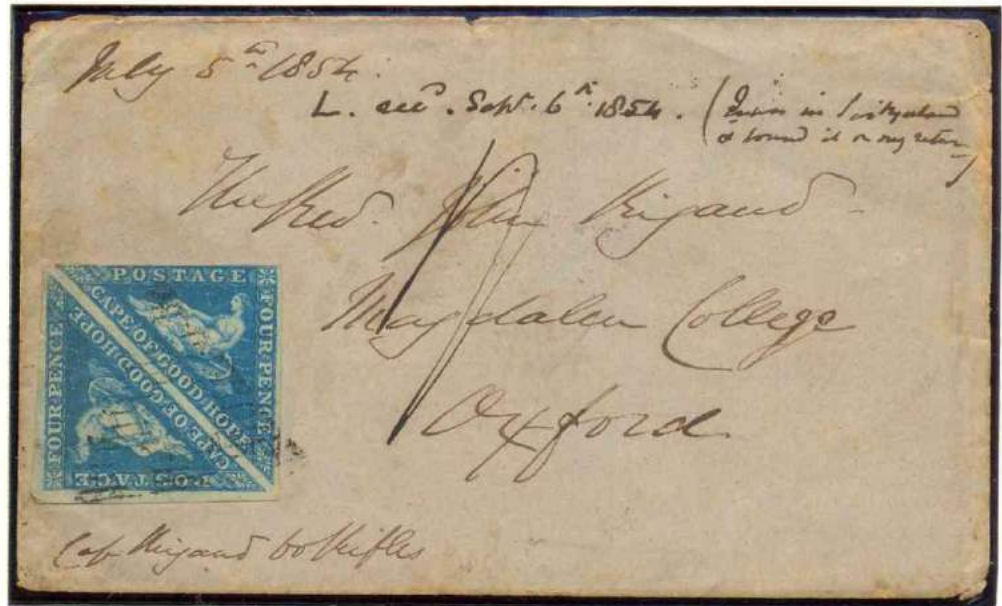 July 5th 1854.
L. recd. Sept. 6th 1854. (
& found it on my return)
The Revd. John Rigaud
Magdalen College
Oxford
POSTAGE
FOUR PENCE
CAPE OF GOOD HOPE
CAPE OF GOOD HOPE
FOUR PENCE
POSTAGE
Cap Rigaud 60 Rifles